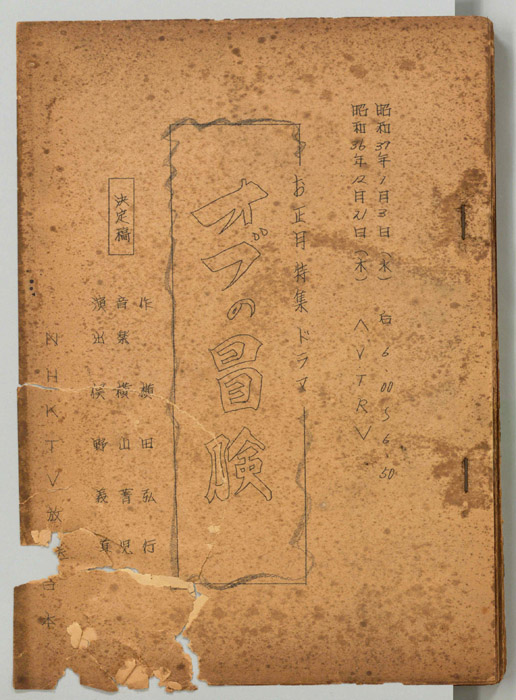 昭和37年1月3日（水） 自 6.00〜6.50
昭和36年12月21日（木） 〈VTRV
お正月特集ドラマ
オブの冒険
決定稿
作 横田弘行
音楽 横山菁児
演出 俣野義真
NHKTV放送台本